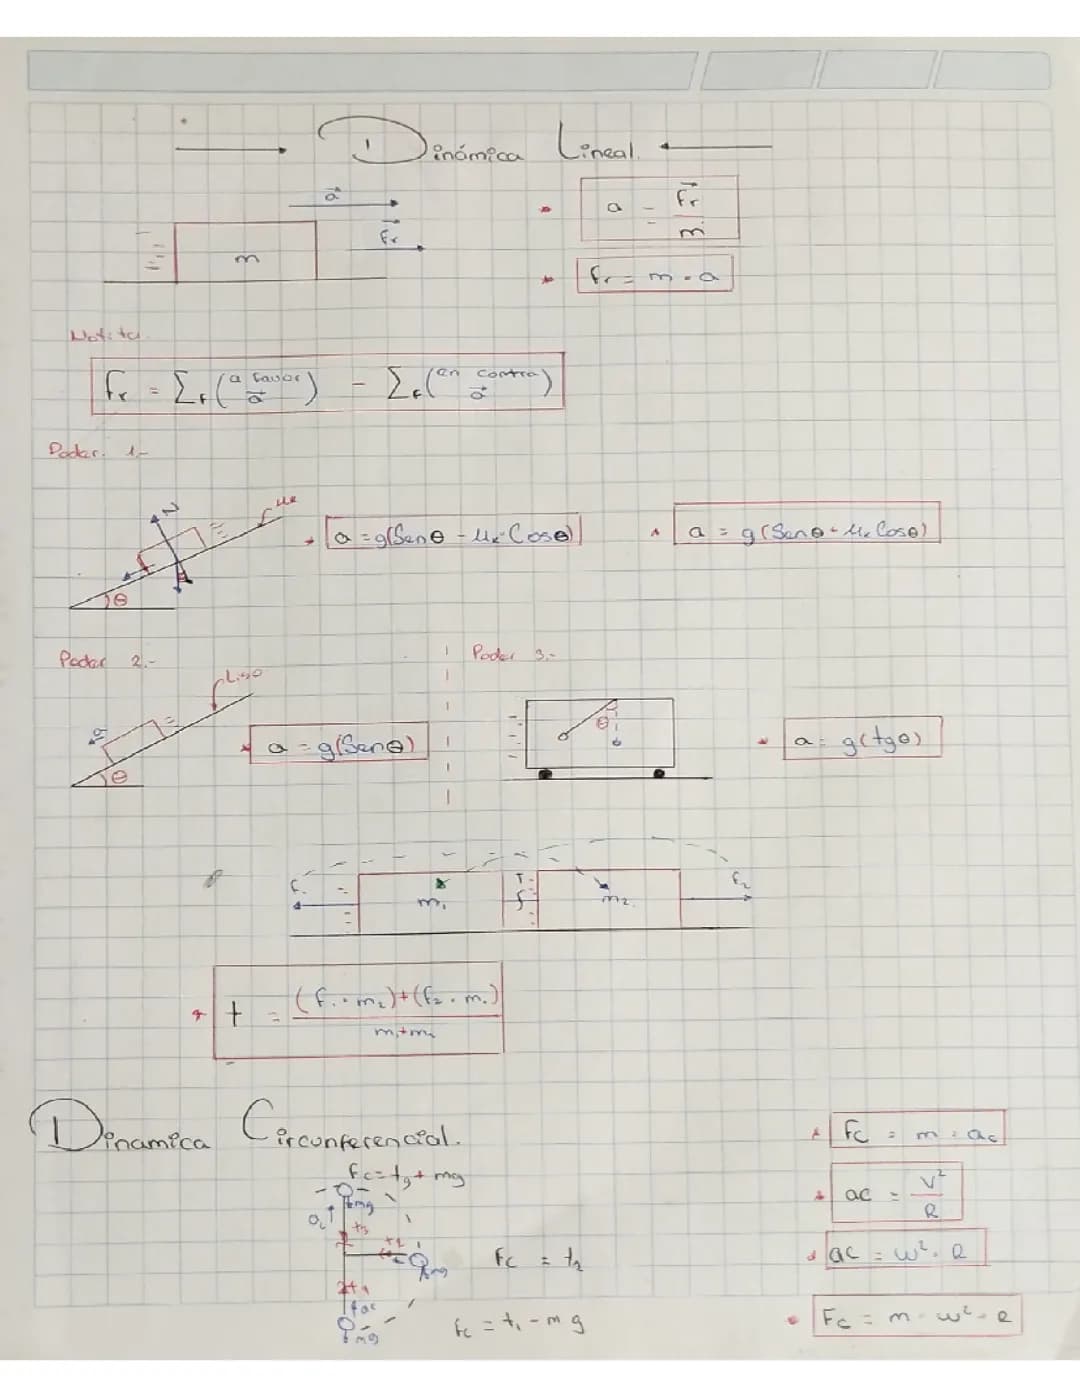 Dinámica Lineal.
a⃗
F⃗r
m
a = F⃗r / m
Fr = m · a
Notita.
Fr = Σf (a favor a⃗) - Σf (en contra a⃗)
Poder. 1.-
N
μk
θ
a = g(Senθ - μk·Cosθ)
a = g(Senθ + μk Cosθ)
Poder 2.-
Liso
a
θ
a = g(Senθ)
Poder 3.-
θ
a = g(tgθ)
F1
m1
T
m2
F2
t = (f1 · m2)+(f2 · m1) / m1+m2
Dinamica Circunferencial.
Fc = t3 + mg
mg
ac
t3
t2
mg
Fc = t2
t1
ac
mg
Fc = t1 - mg
Fc = m · ac
ac = V² / R
ac = w² · R
Fc = m · w² · R